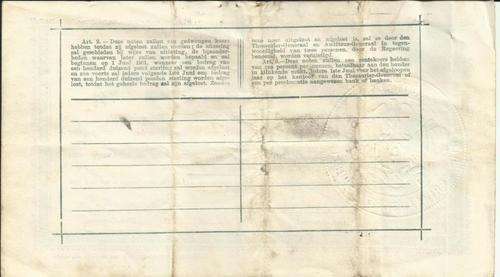 Art. 2.—Deze noten zullen van gedwongen koers
hebben totdat zij afgelost zullen worden; de aflossing
zal geschieden bij wijze van uitloting, de bijzonder-
heden waarvan later zullen worden bepaald en zal
beginnen op 1 Juni 1901, wanneer een bedrag van
een honderd duizend pond sterling zal worden afgelost
en zoo voorts zal iedere volgende 1ste Juni een bedrag
van een honderd duizend ponden sterling worden afge-
lost, totdat het geheele bedrag zal zijn afgelost. Zoodra
eene noot uitgeloot en afgelost is, zal ze door den
Thesaurier-Generaal en Auditeur-Generaal in tegen-
woordigheid van twee personen, door de Regeering
benoemd, worden vernietigd.
Art. 3.—Deze noten zullen een rentekoers hebben
van zes percent per annum, betaalbaar aan den houder
in klinkende munt, iedere 1ste Juni voor het afgeloopen
jaar op het kantoor van den Thesaurier-Generaal of
een per proclamatie aangewezen bank of banken.